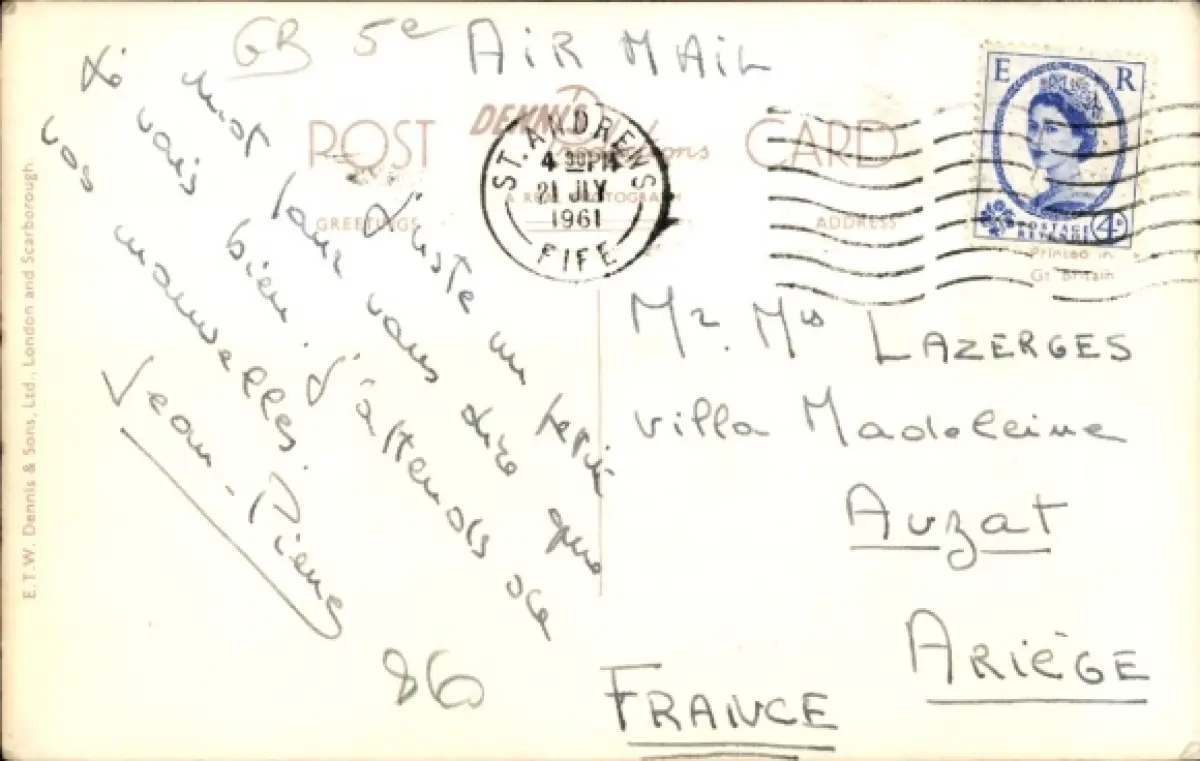 GB 5e
AIR MAIL
POST CARD
DENNIS
Productions
A REAL PHOTOGRAPH
GREETINGS
ADDRESS
ST. ANDREWS
4 30PM
21 JLY
1961
FIFE
E R
POSTAGE
REVENUE
4D
Printed in
Gt. Britain
Juste un petit
mot pour vous dire que
je vais bien. J'attends de
vos nouvelles.
Jean-Pierre
86
Mr. Mrs LAZERGES
Villa Madeleine
Auzat
ARIÈGE
FRANCE
E.T.W. Dennis & Sons, Ltd., London and Scarborough.